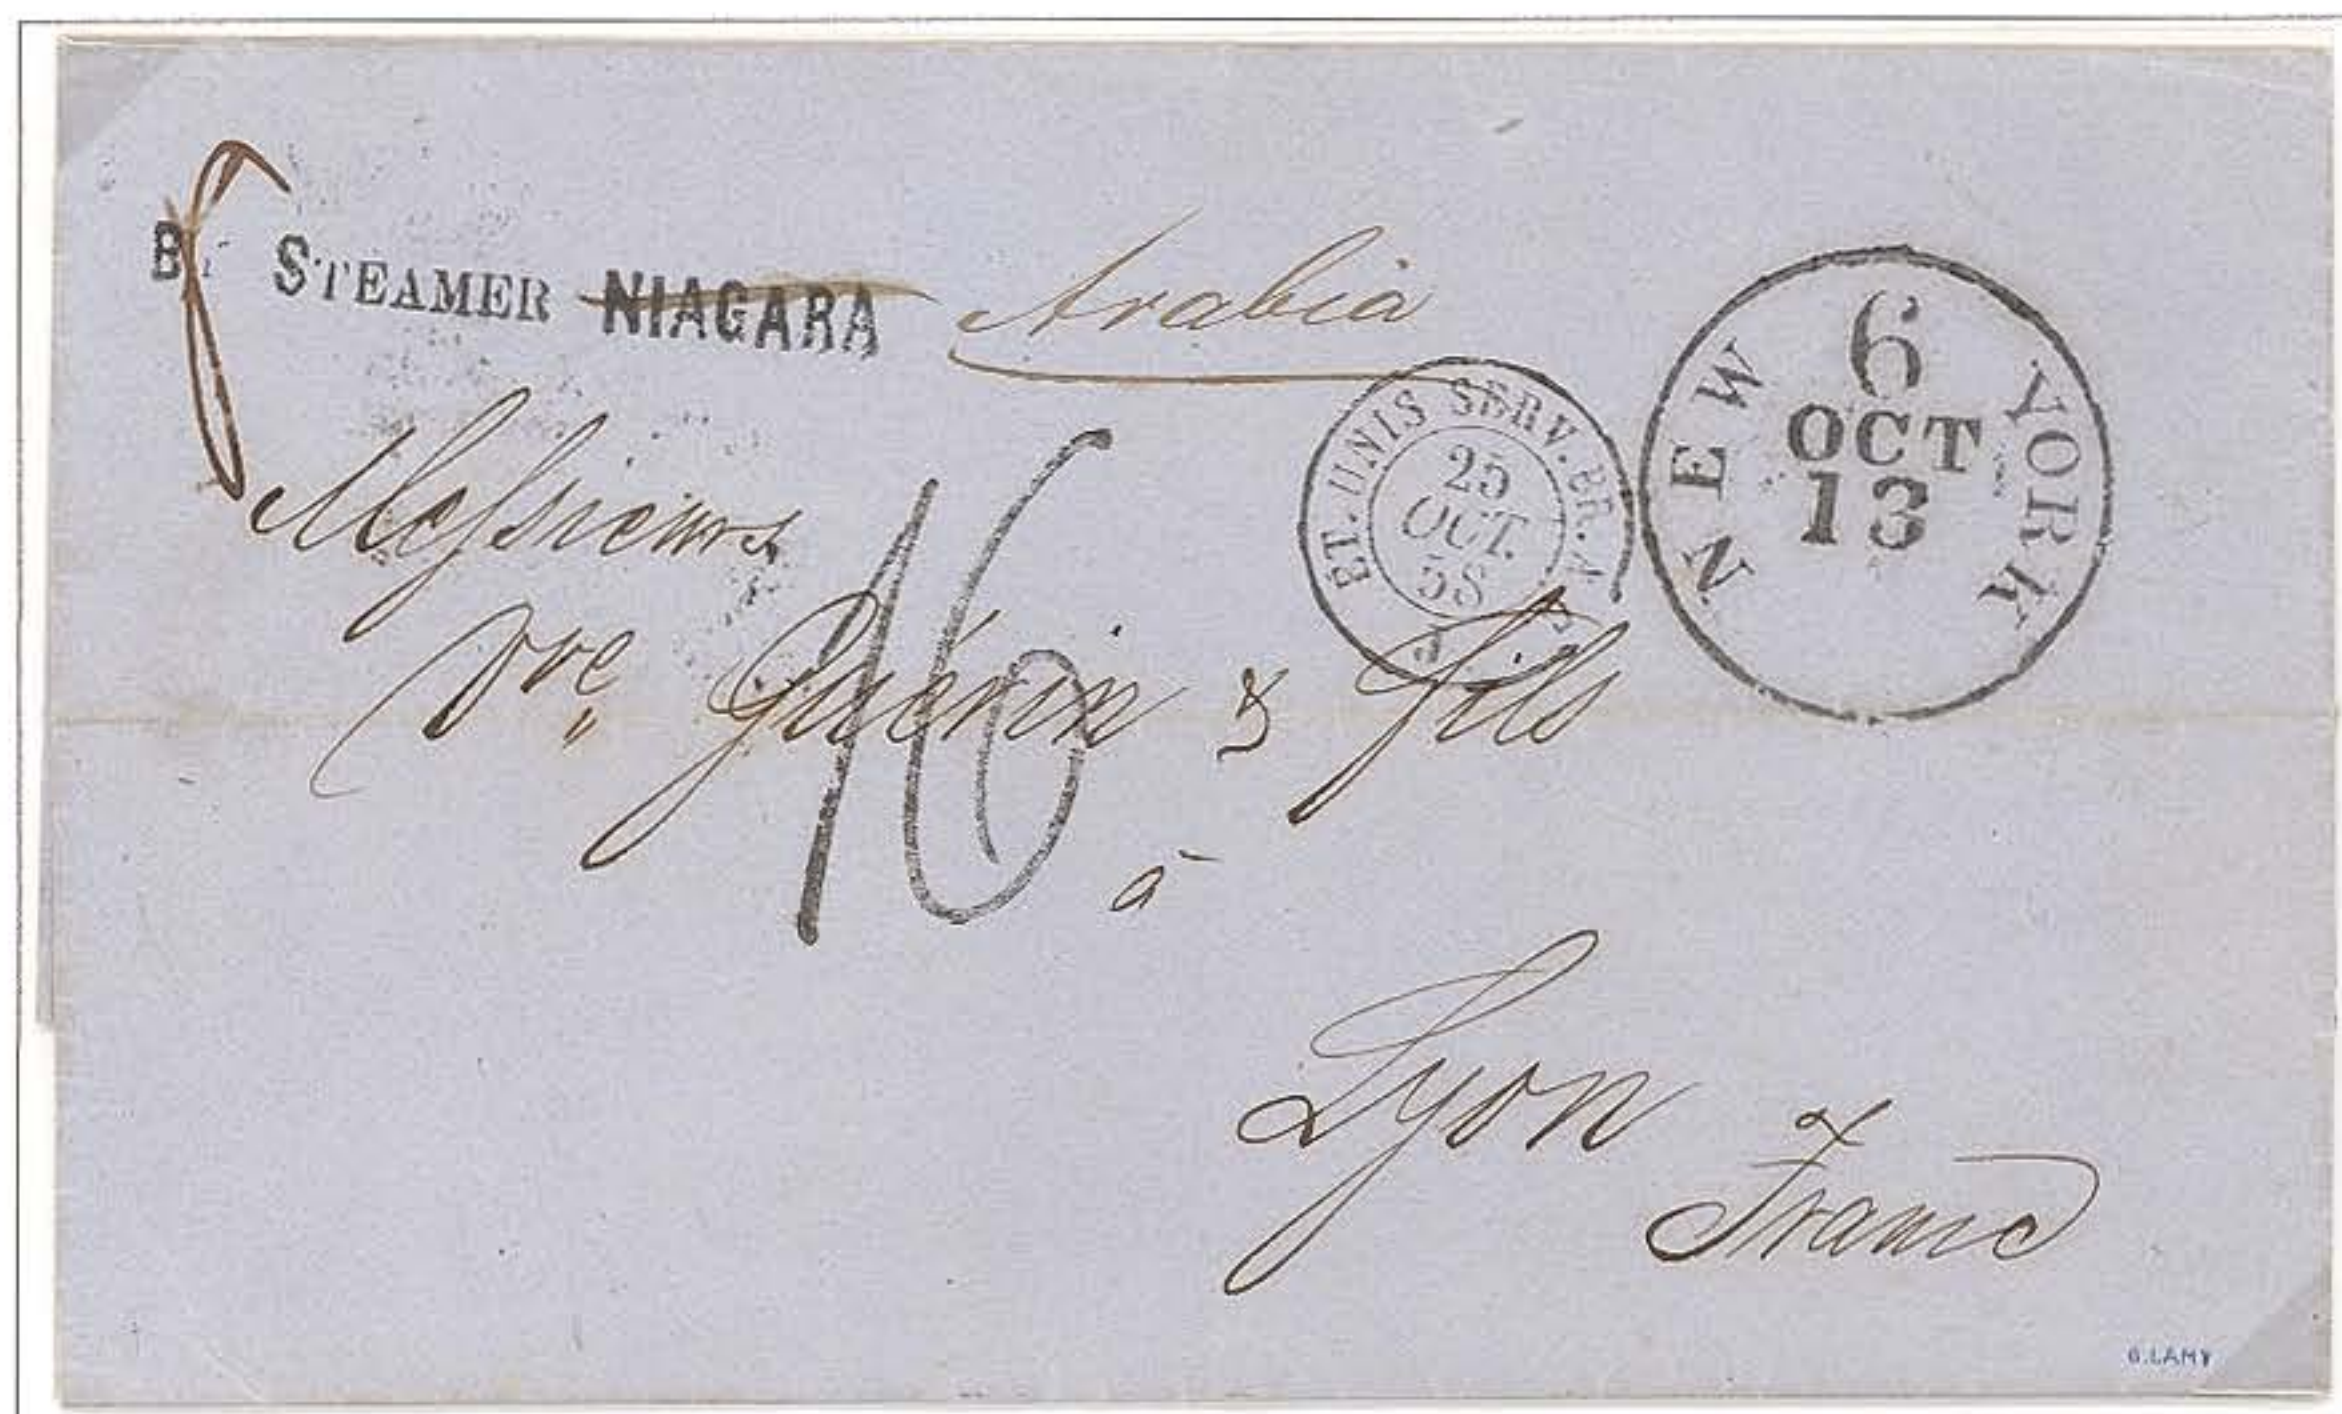 By STEAMER NIAGARA Arabia
NEW YORK
6
OCT
13
ET. UNIS SERV. BR. A
25
OCT.
58
Messieurs
Vve Guérin & fils
16
à
Lyon
France
G. LAMY